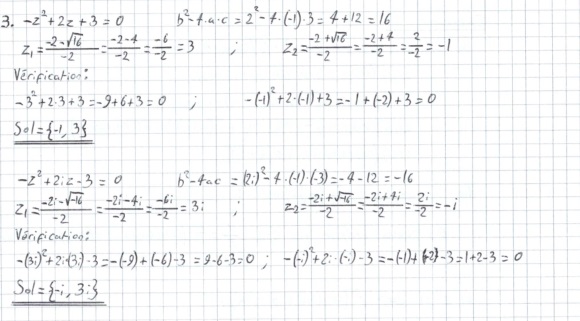 3. -z²+2z+3=0 b²-4·a·c=2²-4·(-1)·3=4+12=16
z₁=(-2-√16)/-2=(-2-4)/-2=-6/-2=3 ; z₂=(-2+√16)/-2=(-2+4)/-2=2/-2=-1
Vérification:
-3²+2·3+3=-9+6+3=0 ; -(-1)²+2·(-1)+3=-1+(-2)+3=0
Sol={-1, 3}
-z²+2iz-3=0 b²-4ac=(2i)²-4·(-1)·(-3)=-4-12=-16
z₁=(-2i-√-16)/-2=(-2i-4i)/-2=-6i/-2=3i ; z₂=(-2i+√-16)/-2=(-2i+4i)/-2=2i/-2=-i
Vérification:
-(3i)²+2i·(3i)-3=-(-9)+(-6)-3=9-6-3=0 ; -(-i)²+2i·(-i)-3=-(-1)+(-2²)-3=1+2-3=0
Sol={-i, 3i}